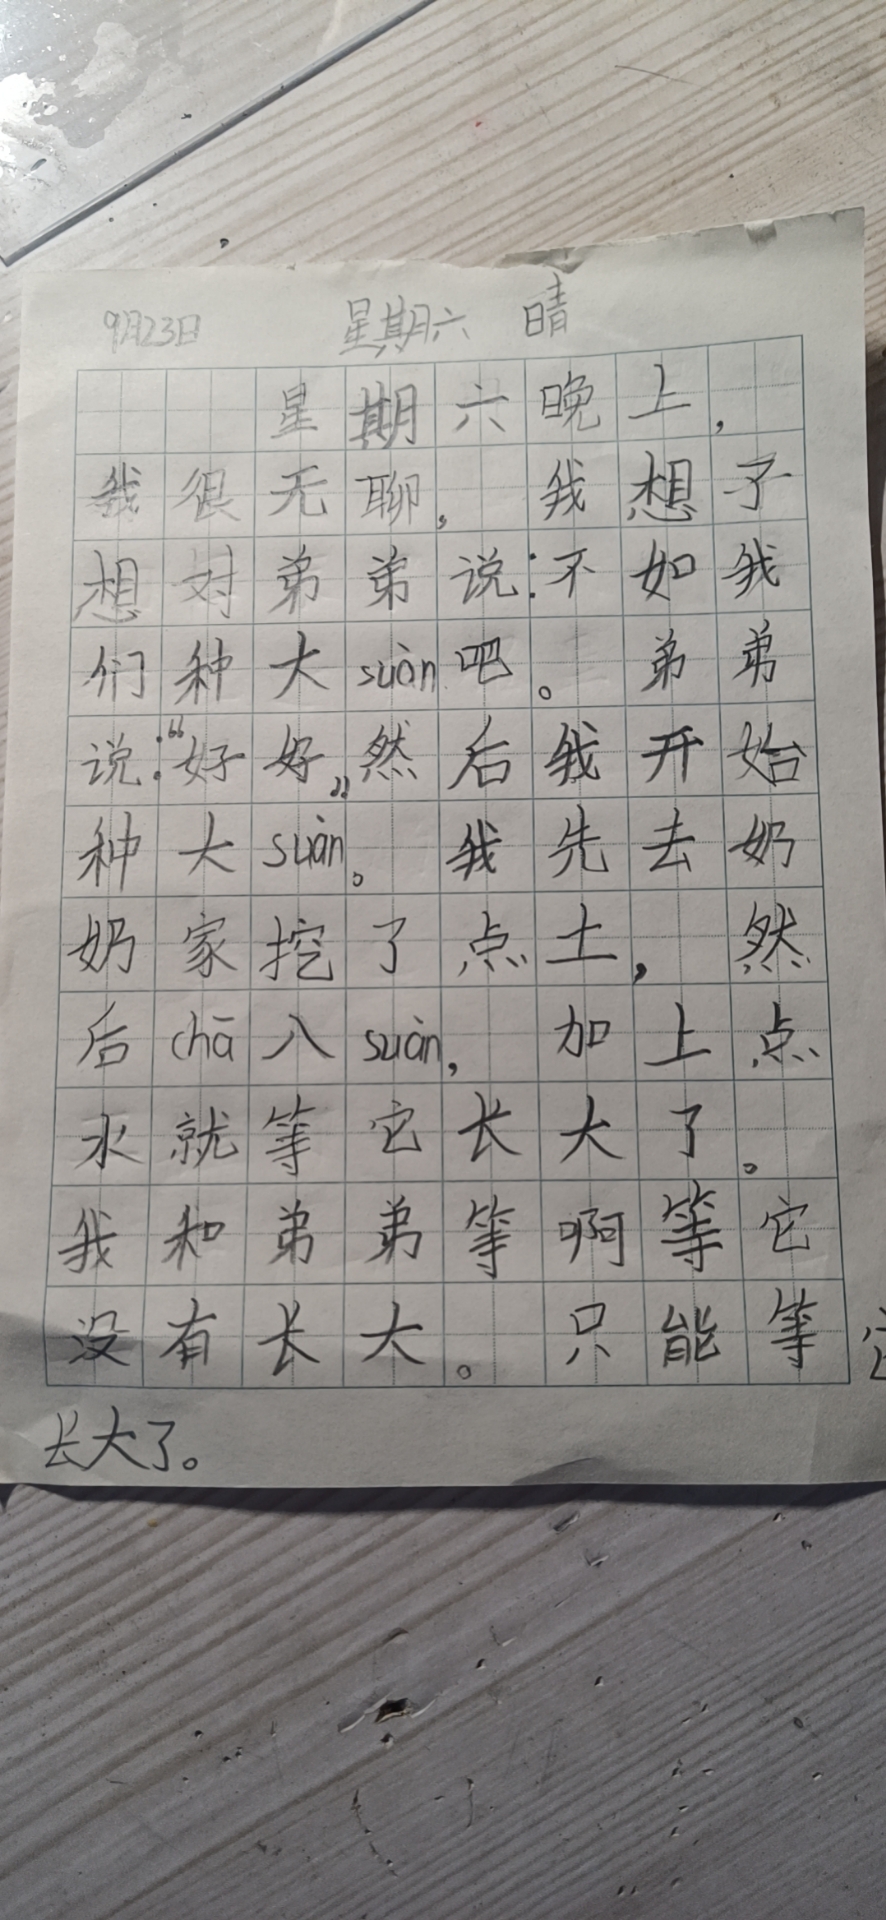 9月23日 星期六 晴
星期六晚上，
我很无聊，我想了
想对弟弟说：不如我
们种大suàn吧。弟弟
说：“好好”然后我开始
种大suàn。我先去奶
奶家挖了点土，然
后chā入suàn，加上点
水就等它长大了。
我和弟弟等啊等它
没有长大。只能等它
长大了。